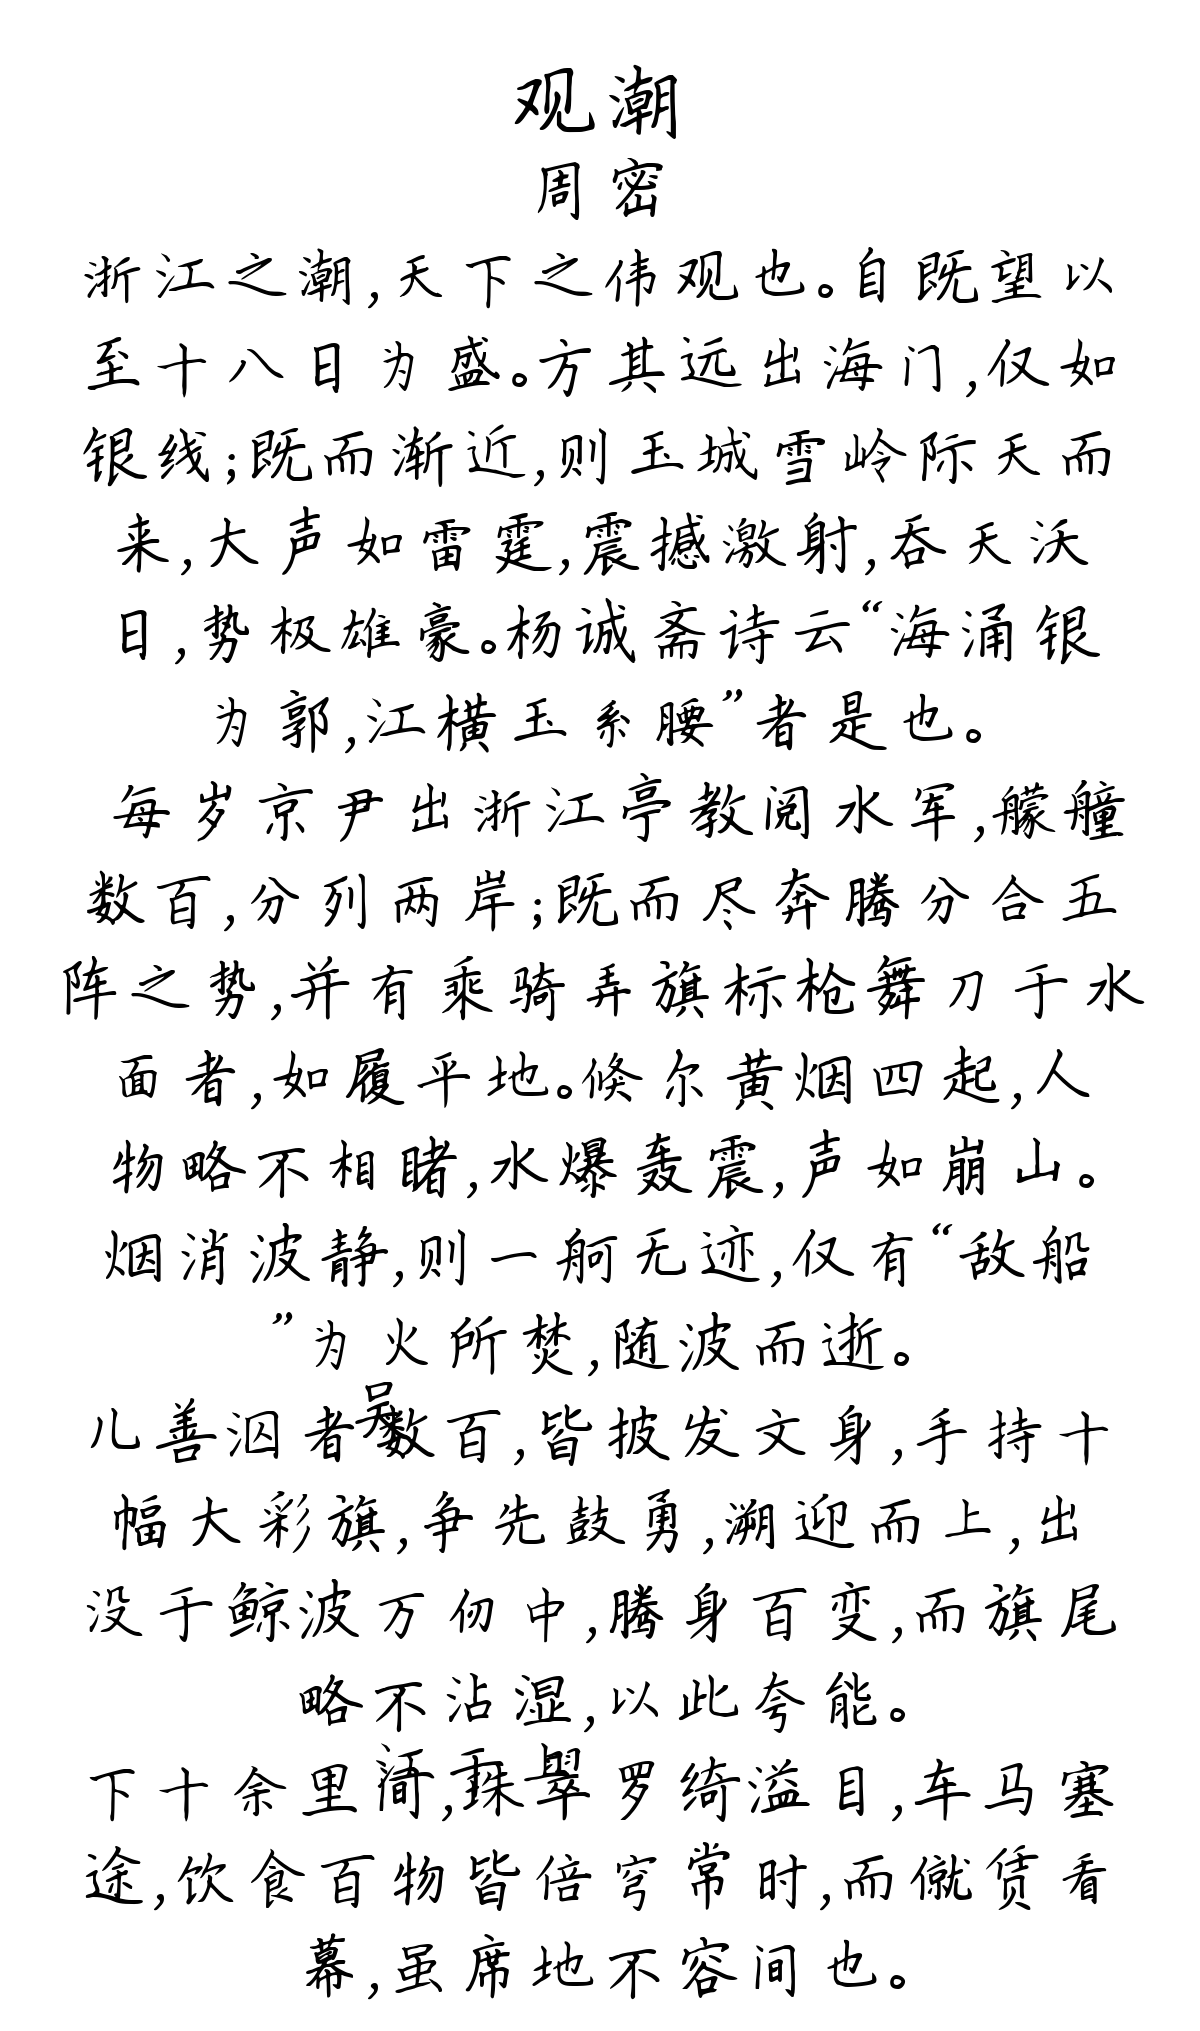 观潮
周密
浙江之潮,天下之伟观也。自既望以
至十八日为盛。方其远出海门,仅如
银线;既而渐近,则玉城雪岭际天而
来,大声如雷霆,震撼激射,吞天沃
日,势极雄豪。杨诚斋诗云“海涌银
为郭,江横玉系腰”者是也。
每岁京尹出浙江亭教阅水军,艨艟
数百,分列两岸;既而尽奔腾分合五
阵之势,并有乘骑弄旗标枪舞刀于水
面者,如履平地。倏尔黄烟四起,人
物略不相睹,水爆轰震,声如崩山。
烟消波静,则一舸无迹,仅有“敌船
”为火所焚,随波而逝。
吴
儿善泅者数百,皆披发文身,手持十
幅大彩旗,争先鼓勇,溯迎而上,出
没于鲸波万仞中,腾身百变,而旗尾
略不沾湿,以此夸能。
江干上
下十余里间,珠翠罗绮溢目,车马塞
途,饮食百物皆倍穹常时,而僦赁看
幕,虽席地不容间也。